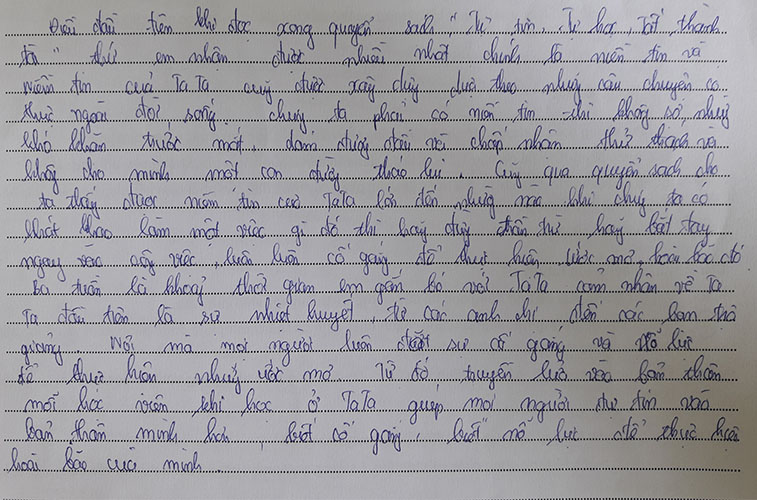 Điều đầu tiên khi đọc xong quyển sách "Tự tin, Tự học, Tất thành
tà" thứ em nhận được nhiều nhất chính là niềm tin và
niềm tin của TaTa cũng được xây dựng dựa theo những câu chuyện có
thực ngoài đời sống. chúng ta phải có niềm tin thì không sợ những
khó khăn trước mắt, dám đương đầu và chấp nhận thử thách và
không cho mình một con đường tháo lui. Cũng qua quyển sách cho
ta thấy được niềm tin của TaTa lớn đến những nào khi chúng ta có
khát khao làm một việc gì đó thì hãy đừng chần chừ hãy bắt tay
ngay vào công việc, luôn luôn cố gắng để thực hiện ước mơ, hoài bão đó
Ba tuần là khoảng thời gian em gắn bó với TaTa cảm nhận về Ta
Ta đầu tiên là sự nhiệt huyết, từ các anh chị đến các bạn
giảng. Nơi mà mọi người luôn sự cố gắng và nỗ lực
để thực hiện những ước mơ. Từ đó truyền lửa vào bản thân
mỗi học viên khi học ở TaTa giúp mọi người tự tin vào
bản thân mình hơn, biết cố gắng, biết nỗ lực để thực hiện
hoài bão của mình.